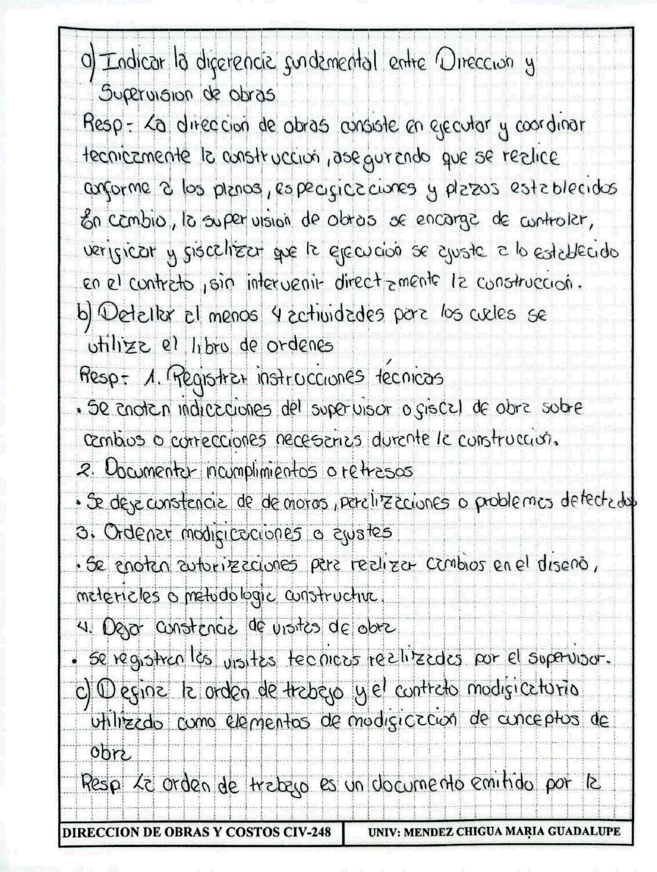 a) Indicar la diferencia fundamental entre Direccion y
Supervision de obras
Resp- La direccion de obras consiste en ejecutar y coordinar
tecnicamente la construccion, asegurando que se realice
conforme a los planos, especificaciones y plazos establecidos
En cambio, la supervisión de obras se encarga de controlar,
verificar y fiscalizar que la ejecución se ajuste a lo establecido
en el contrato, sin intervenir directamente la construccion.
b) Detallar al menos 4 actividades para los cuales se
utiliza el libro de ordenes
Resp- 1. Registrar instrucciones técnicas
• Se anotan indicaciones del supervisor o fiscal de obra sobre
cambios o correcciones necesarias durante la construcción.
2. Documentar incumplimientos o retrasos
• Se deja constancia de demoras, paralizaciones o problemas detectados
3. Ordenar modificaciones o ajustes
• Se anotan autorizaciones para realizar cambios en el diseño,
materiales o metodologia constructiva.
4. Dejar constancia de visitas de obra
• Se registran las visitas tecnicas realizadas por el supervisor.
c) Defina la orden de trabajo y el contrato modificatorio
utilizado como elementos de modificación de conceptos de
obra
Resp La orden de trabajo es un documento emitido por la
DIRECCION DE OBRAS Y COSTOS CIV-248
UNIV: MENDEZ CHIGUA MARIA GUADALUPE